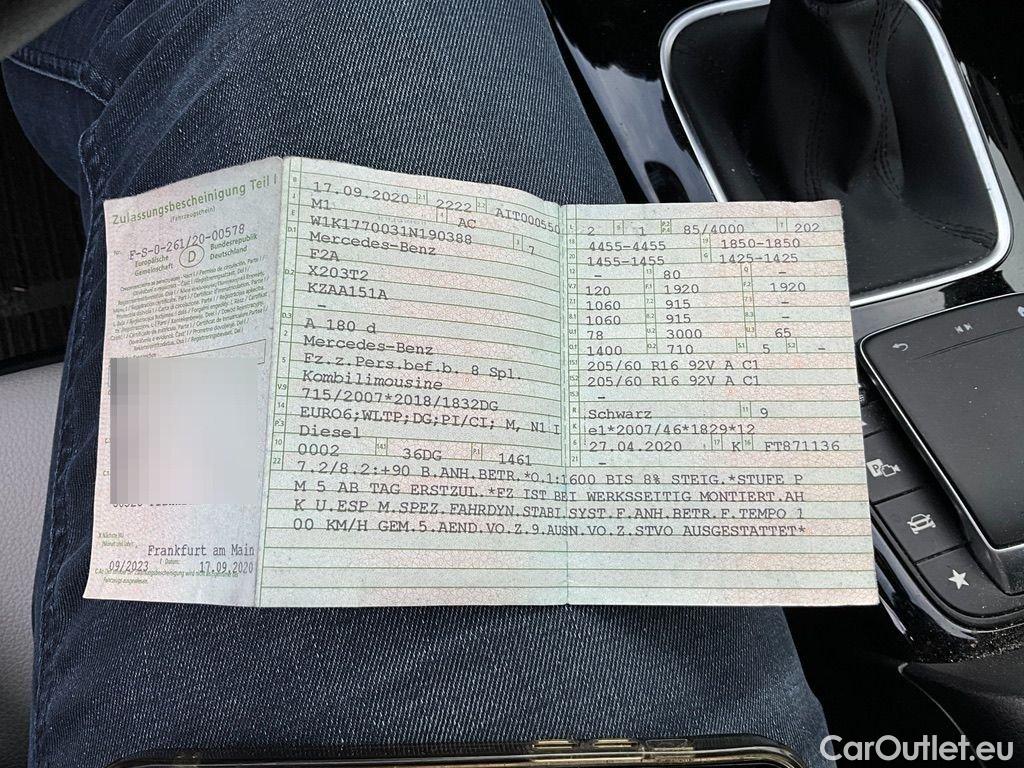 Zulassungsbescheinigung Teil I
(Fahrzeugschein)
Nr. F-S-0-261/20-00578
Europäische Gemeinschaft D Bundesrepublik Deutschland
Frankfurt am Main
09/2023 17.09.2020
B 17.09.2020 2.1 2222 2.2 AIT000550
J M1 4 AC
E W1K1770031N190388 3 7
D.1 Mercedes-Benz
F2A
D.2 X203T2
KZAA151A
–
D.3 A 180 d
Mercedes-Benz
5 Fz.z.Pers.bef.b. 8 Spl.
Kombilimousine
V.9 715/2007*2018/1832DG
14 EURO6;WLTP;DG;PI/CI; M, N1 I
P.3 Diesel
10 0002 14.1 36DG P.1 1461
L 2 9 1 P.2 P.4 85/4000 T 202
18 4455-4455 19 1850-1850
20 1455-1455 G 1425-1425
12 – 13 80 Q –
V.7 120 F.1 1920 F.2 1920
7.1 1060 7.2 915 7.3 –
8.1 1060 8.2 915 8.3 –
U.1 78 U.2 3000 U.3 65
O.1 1400 O.2 710 S.1 5 S.2 –
15.1 205/60 R16 92V A C1
15.2 205/60 R16 92V A C1
15.3 –
R Schwarz 11 9
K e1*2007/46*1829*12
6 27.04.2020 17 K 16 FT871136
21 –
22 7.2/8.2:+90 B.ANH.BETR.*O.1:1600 BIS 8% STEIG.*STUFE P
M 5 AB TAG ERSTZUL.*FZ IST BEI WERKSSEITIG MONTIERT.AH
K U.ESP M.SPEZ.FAHRDYN.STABI.SYST.F.ANH.BETR.F.TEMPO 1
00 KM/H GEM.5.AEND.VO.Z.9.AUSN.VO.Z.STVO AUSGESTATTET*
P
CarOutlet.eu